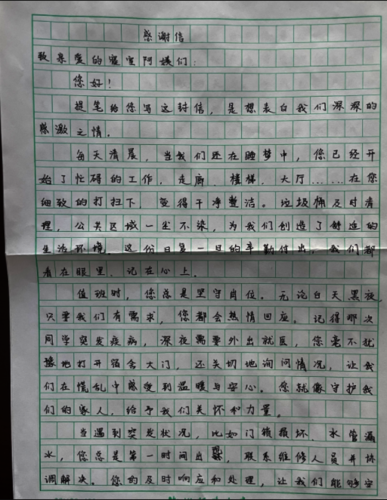 感谢信
敬亲爱的寝室阿姨们：
您好！
提笔给您写这封信，是想表白我们深深的
感激之情。
每天清晨，当我们还在睡梦中，您已经开
始了忙碌的工作。走廊、楼梯、大厅……在您
细致的打扫下，变得干净整洁。垃圾桶及时清
理，公共区域一尘不染，为我们创造了舒适的
生活环境。这份日复一日的辛勤付出，我们都
看在眼里，记在心上。
值班时，您总是坚守岗位。无论白天黑夜
只要我们有需求，您都会热情回应。记得那次
同学突发疾病，深夜需要外出就医，您毫不犹
豫地打开宿舍大门，还关切地询问情况，让我
们在慌乱中感受到温暖与安心。您就像守护我
们的家人，给予我们关怀和力量。
当遇到突发状况，比如门锁损坏、水管漏
水，您总是第一时间出，联系维修人员并协
调解决。您的及时响应和处理，让我们能够安